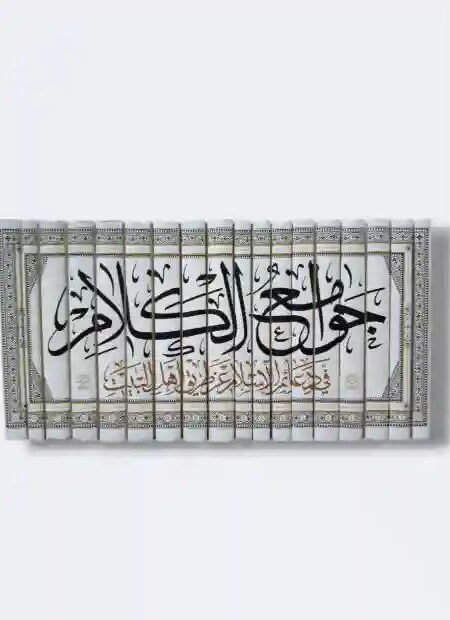 جوامع الكلام
في دعائم الإسلام عن طريق أهل البيت